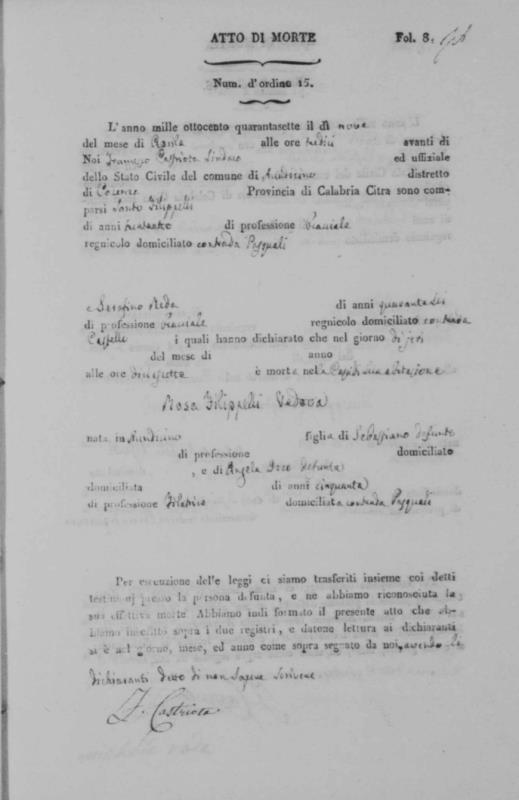 ATTO DI MORTE Fol. 8.
Num. d'ordine 15.
L'anno mille ottocento quarantasette il dì nove
del mese di alle ore tredici avanti di
Noi Castriota Sindaco ed uffiziale
dello Stato Civile del comune di distretto
di Cosenza Provincia di Calabria Citra sono com-
parsi Santo Filippelli
di anni di professione Bracciale
regnicolo domiciliato contrada Pasquali
e Serafino Reda di anni quaranta sei
di professione Bracciale regnicolo domiciliato contrada
i quali hanno dichiarato che nel giorno di jeri
del mese di anno
alle ore diecisette è morta nella abitazione
Rosa Filippelli Vedova
nata in figlia di Sebastiano defunto
di professione domiciliato
, e di Angela defunta
domiciliata di anni cinquanta
di professione domiciliata contrada Pasquali
Per esecuzione delle leggi ci siamo trasferiti insieme coi detti
testimonj presso la persona defunta, e ne abbiamo riconosciuta la
sua effettiva morte Abbiamo indi formato il presente atto che ab-
biamo inscritto sopra i due registri, e datone lettura ai dichiaranti
si è nel giorno, mese, ed anno come sopra segnato da noi, avendo li
dichiaranti detto di non sapere scrivere
F. Castriota